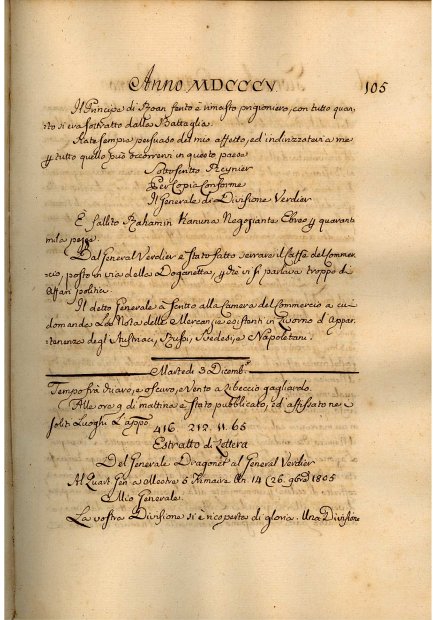 Anno MDCCCV. 105
Il Principe di Roan ferito è rimasto prigioniero, con tutto quan-
to si era sottratto dalla Battaglia.
State sempre persuaso del mio affetto, ed indirizzatevi a me
p tutto quello può occorrervi in questo paese
Sottoscritto Reynier
Per Copia Conforme
Il Generale di Divisione Verdier
E fallito Rahamin Kanuna Negoziante Ebreo p quaranta
mila pezze
Dal General Verdier è stato fatto serrare il Caffè del Commer-
cio, posto in via della Doganetta, p che vi si parlava troppo di
Affari politici
Il detto Generale à scritto alla Camera del Commercio a cui
domanda La Nota delle Mercanzie esistenti in Livorno d'Appar-
tenenza degl'Austriaci, Russi, Svedesi, e Napoletani.
Martedì 3 Dicembre
Tempo frà vario, e oscuro, e Vento a Libeccio gagliardo.
Alle ore 9 di mattina è stato pubblicato, ed affissato ne
soliti Luoghi L'appo
416. 212. 11. 65
Estratto di Lettera
Del Generale Dragonet al General Verdier
Al Quart Gen a 5 Frimaire An. 14 (26 9bre) 1805
Mio Generale.
La vostra Divisione si è ricoperta di gloria. Una Divisione